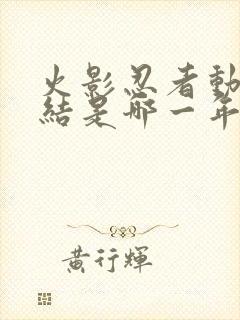 火影忍者動
結是哪一年
黃行輝